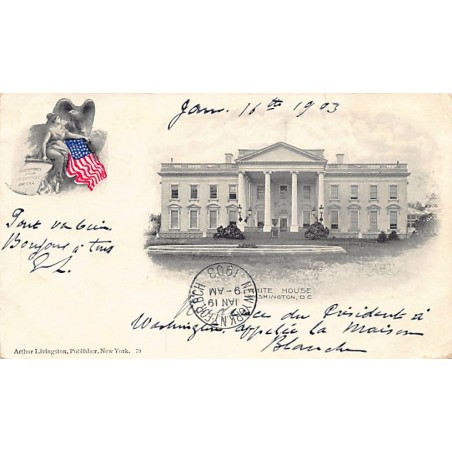 Jan. 16th 1903
Tout va bien
Bonjour à tous
WHITE HOUSE
WASHINGTON, D.C.
NEW YORK, N.Y. FOR. BCH.
JAN 19
9-AM
1903
du Président à
Washington, appelée la Maison
Blanche
Arthur Livingston, Publisher, New York. 79